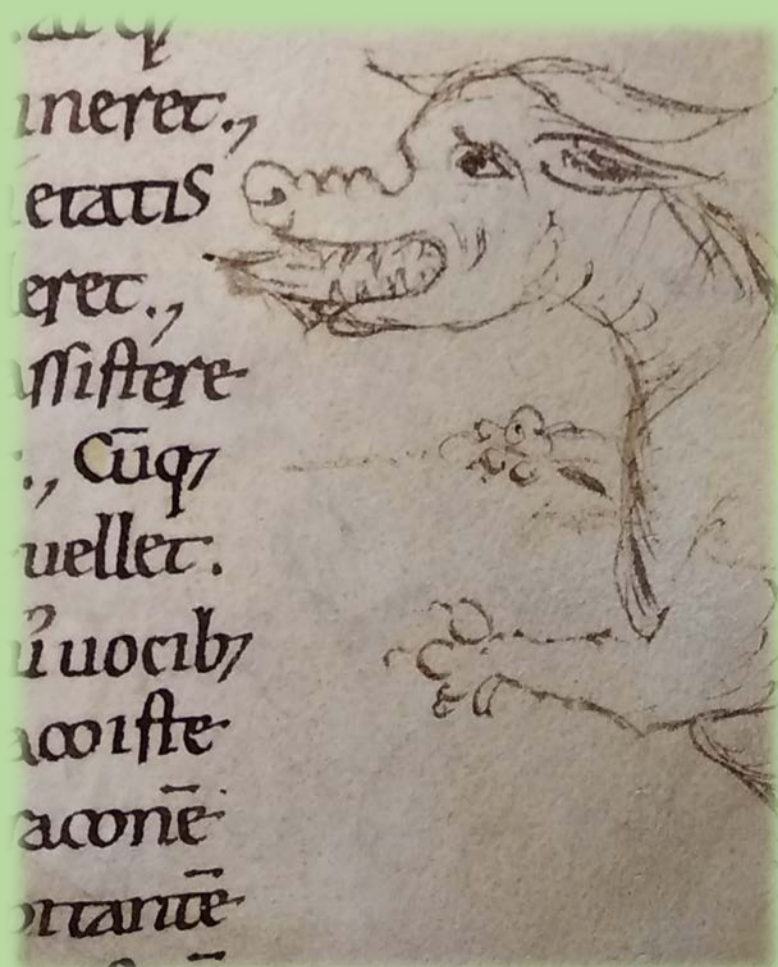 q;
ineret.,
etatis
eret.,
assistere
., Cūq;
uellet.
uocib;
aco iste
aconē
ortantē